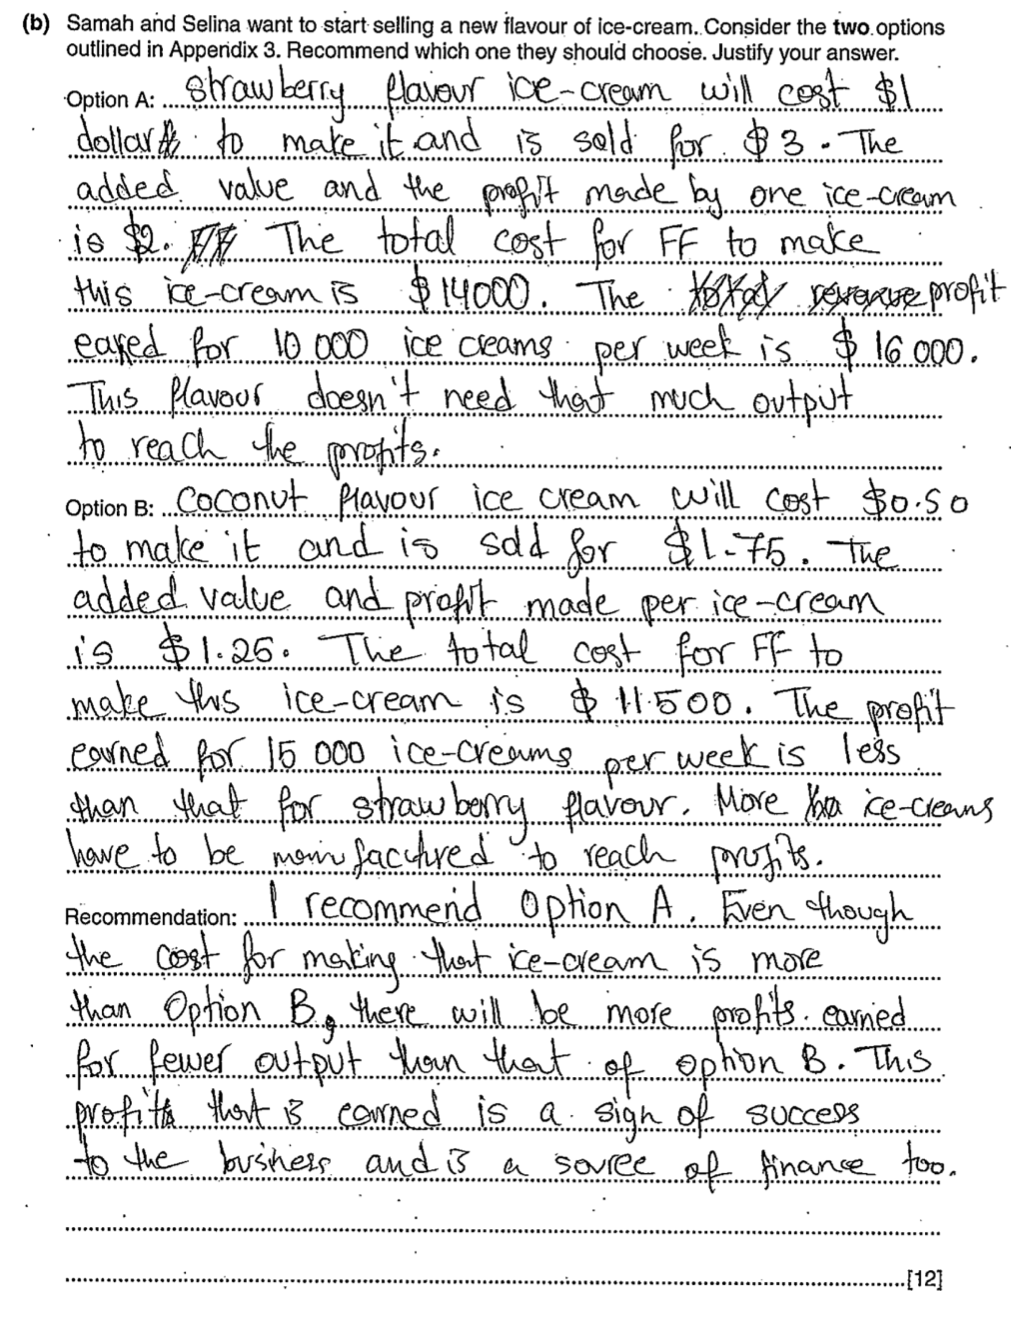 (b) Samah and Selina want to start selling a new flavour of ice-cream. Consider the two options
outlined in Appendix 3. Recommend which one they should choose. Justify your answer.
Option A: strawberry flavour ice-cream will cost $1
dollar to make it and is sold for $3. The
added value and the profit made by one ice-cream
is $2. The total cost for FF to make
this ice-cream is $14000. The total revenue profit
eared for 10 000 ice creams per week is $16 000.
This flavour doesn't need that much output
to reach the profits.
Option B: Coconut flavour ice cream will cost $0.50
to make it and is sold for $1.75. The
added value and profit made per ice-cream
is $1.25. The total cost for FF to
make this ice-cream is $11500. The profit
earned for 15 000 ice-creams per week is less
than that for strawberry flavour. More ice-creams
have to be manufactured to reach profits.
Recommendation: I recommend Option A. Even though
the cost for making that ice-cream is more
than Option B, there will be more profits earned
for fewer output than that of option B. This
profit that is earned is a sign of success
to the business and is a source of finance too.
[12]